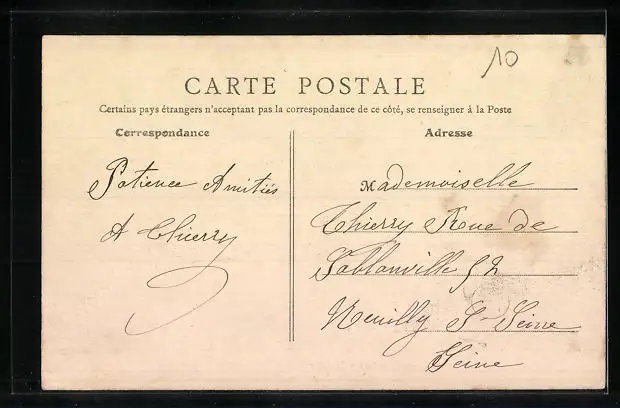 10
CARTE POSTALE
Certains pays étrangers n'acceptant pas la correspondance de ce côté, se renseigner à la Poste
Correspondance
Patience Amitiés
A Thierry
Adresse
Mademoiselle
Thierry Rue de
Sablonville 52
Neuilly S- Seine
Seine